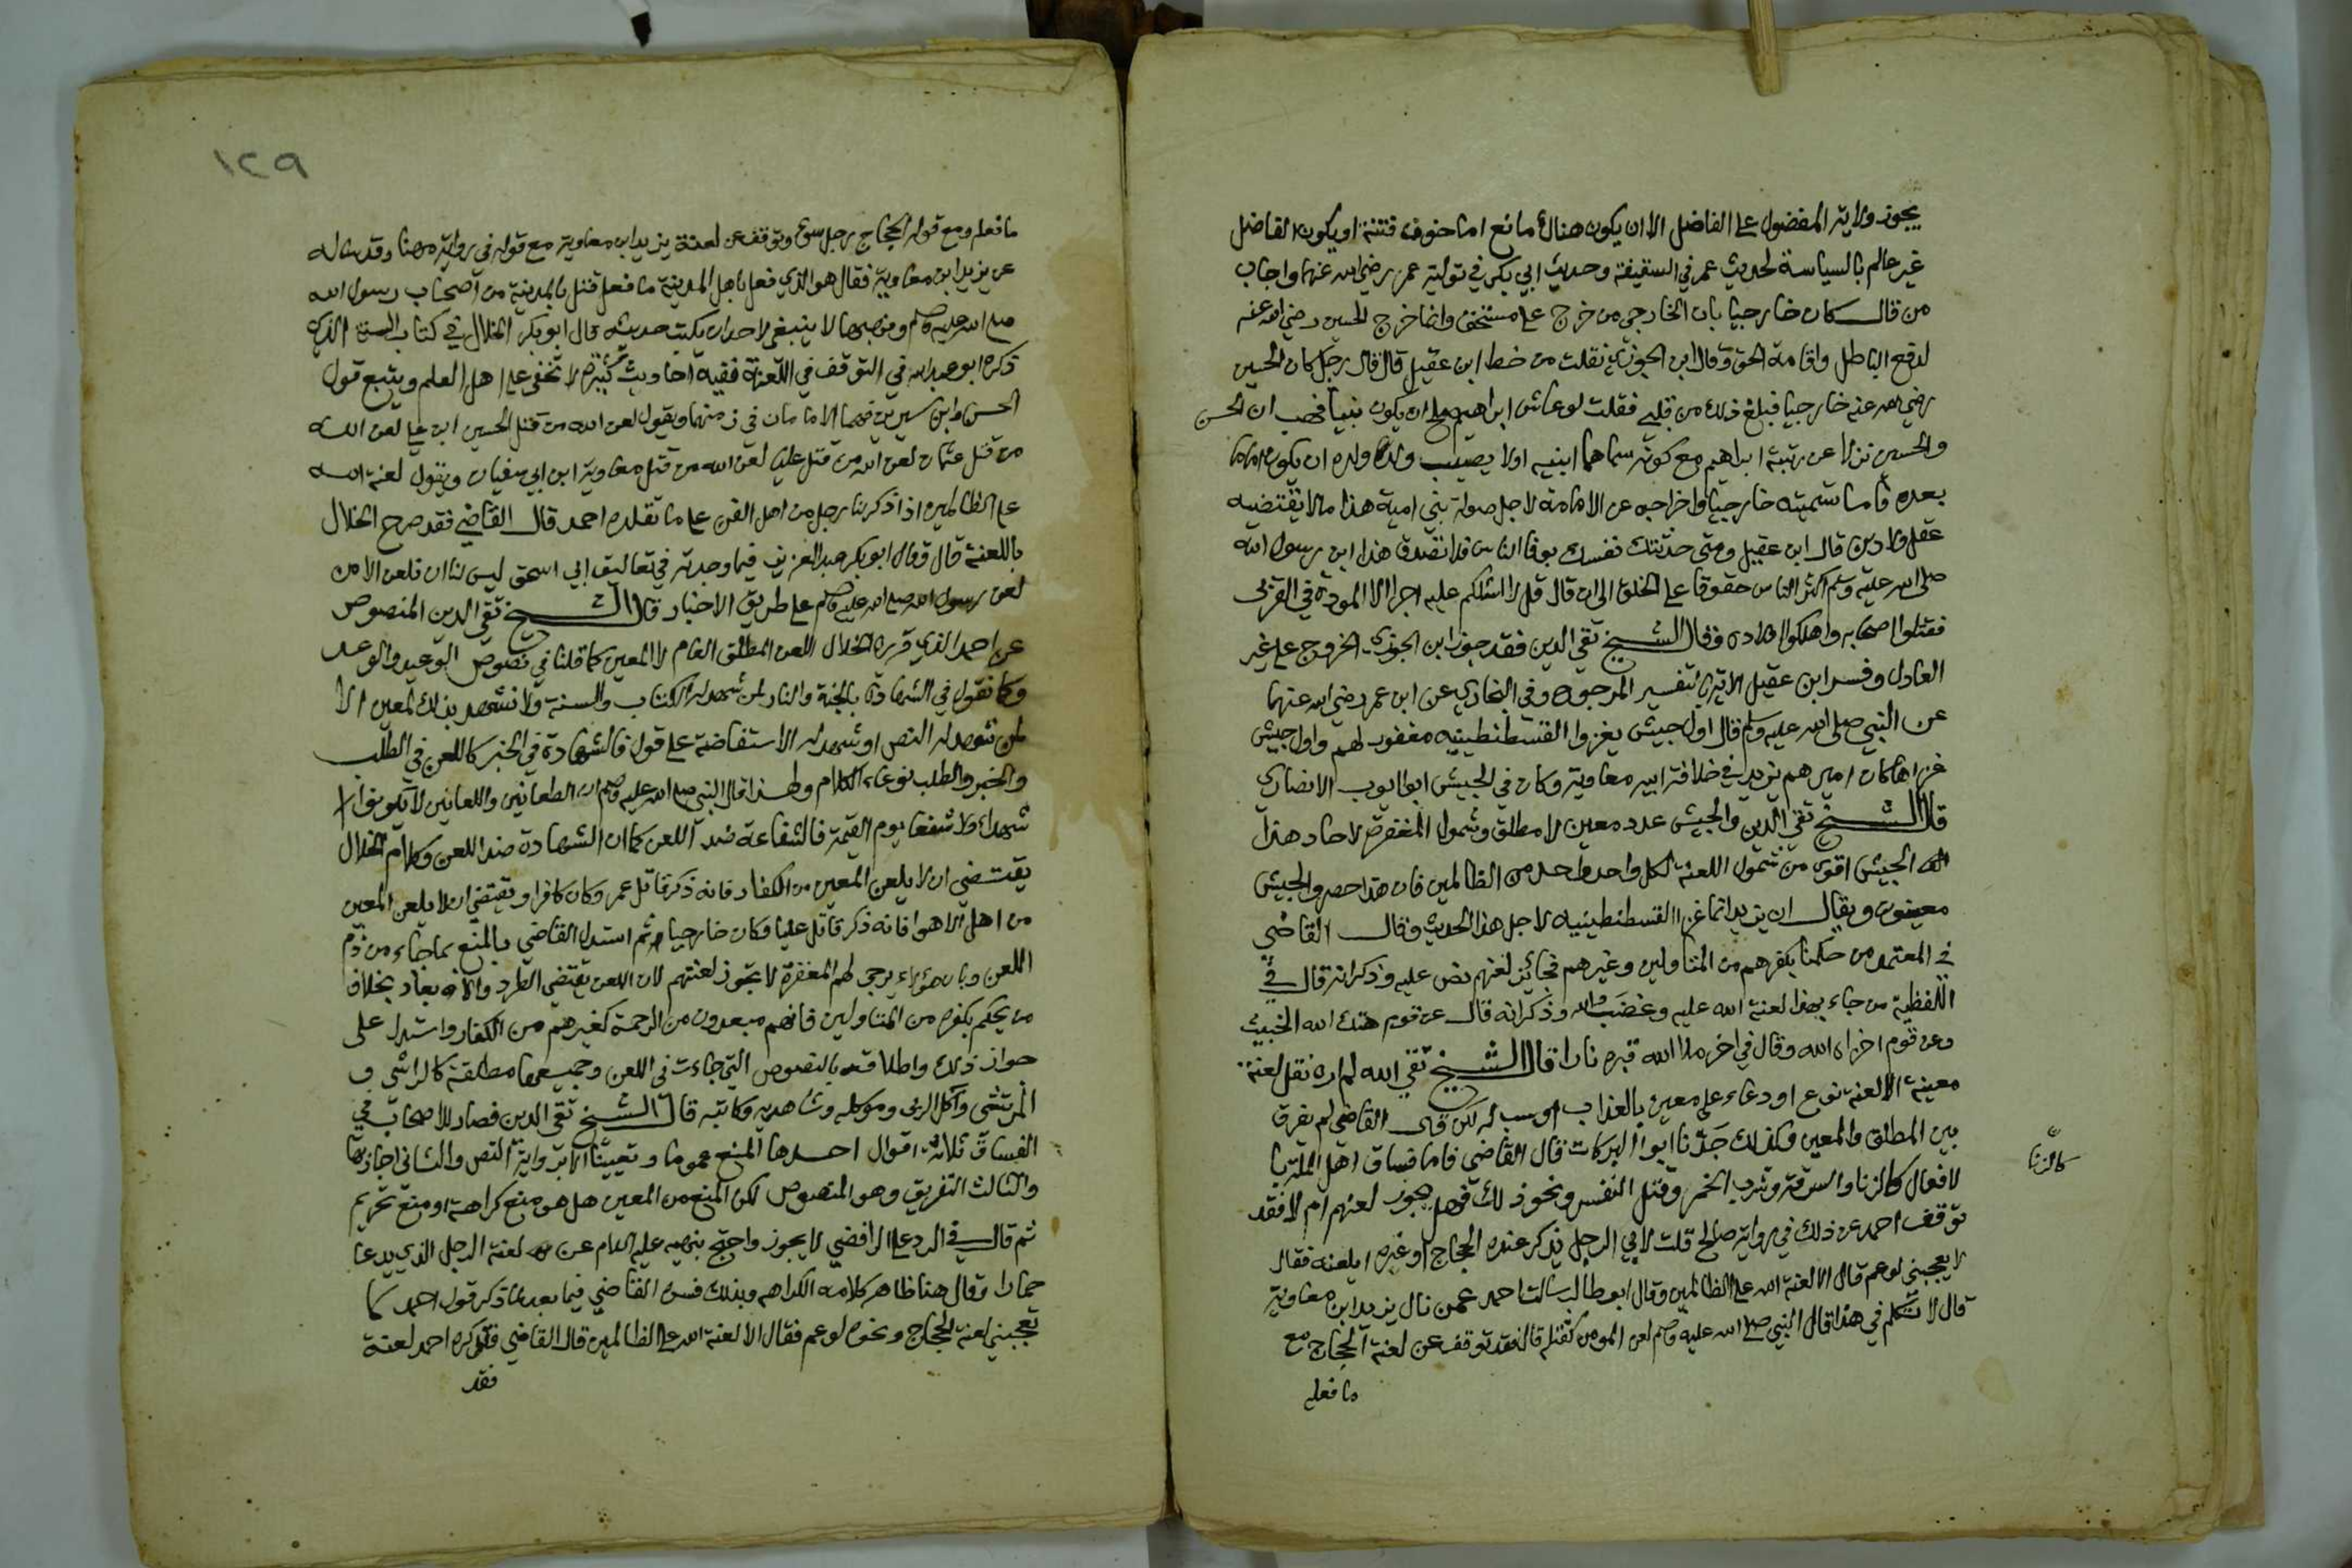 يجوز ولاية المفضول على الفاضل الا ان يكون هناك مانع اما خوف فتنة او يكون الفاضل
غير عالم بالسياسة لحديث عمر في السقيفة وحديث ابي بكر في تولية عمر رضي الله عنهما واجاب
من قال كان خارجيا بان الخارجي من خرج على مستحق وانما خرج الحسين رضي الله عنه
لدفع الباطل واقامة الحق وقال ابن الجوزي نقلت من خط ابن عقيل قال قال رجل كان الحسين
رضي الله عنه خارجيا فبلغ ذلك من قلبي فقلت لو عاش ابراهيم صلح ان يكون نبيا فهب ان الحسن
والحسين نزلا عن رتبة ابراهيم مع كونه سماهما ابنيه اولا يصيب ولد ولده ان يكون اماما
بعده فاما تسميته خارجيا واخراجه عن الامامة لاجل صولة بني امية هذا مالا يقتضيه
عقل ولا دين قال ابن عقيل ومتى حدثتك نفسك بوفا الناس فلا تصدق هذا ابن رسول الله
صلى الله عليه وسلم اكثر الناس حقوقا على الخلق الى ان قال قل لا اسئلكم عليه اجرا الا المودة في القربى
فقتلوا اصحابه واهلكوا اولاده وقال الشيخ تقي الدين فقد جوز ابن الجوزي الخروج على غير
العادل وفسر ابن عقيل الاية بتفسير المرجوح وفي البخاري عن ابن عمر رضي الله عنهما
عن النبي صلى الله عليه وسلم قال اول جيش يغزوا القسطنطينيه مغفور لهم واول جيش
غزاها كان اميرهم يزيد في خلافة ابيه معاوية وكان في الجيش ابوا ايوب الانصاري
قال الشيخ تقي الدين والجيش عدد معين لا مطلق وشمول المغفرة لاحاد هذا
الجيش اقوى من شمول اللعنة لكل واحد واحد من الظالمين فان هذا احصر والجيش
معينون ويقال ان يزيد انما غزا القسطنطينيه لاجل هذا الحديث وقال القاضي
في المعتمد من حكمنا بكفرهم من المتاولين وغيرهم فجائز لعنهم نص عليه وذكر انه قال في
اللفظية من جاء بهذا لعنة الله عليه وغضب الله وذكر انه قال عن قوم هتك الله الخبيث
وعن قوم اخزاه الله وقال في اخر ملا الله قبره نارا قال الشيخ تقي الله لم اره نقل لعنة
معينة الا لعنة نوع او دعاء على معين بالعذاب او سب له لكن قال القاضي لم يفرق
بين المطلق والمعين وكذلك جدنا ابوا البركات قال القاضي فاما فساق اهل الملة با
لافعال كالزنا والسرقة وشرب الخمر وقتل النفس ونحو ذلك فهل يجوز لعنهم ام لا فقد
كالزنا
توقف احمد عن ذلك في رواية صالح قلت لابي الرجل يذكر عنده الحجاج او غيره ايلعنه فقال
لا يعجبني لو عم قال الا لعنة الله على الظالمين وقال ابو طالب سالت احمد عمن نال يزيد ابن معاوية
قال لا تتكلم في هذا قال النبي صلى الله عليه وسلم لعن المومن كقتله قال فقد توقف عن لعنة الحجاج مع
ما فعله
١٢٩
ما فعله ومع قوله الحجاج رجل سوء وتوقف عن لعنة يزيد ابن معاوية مع قوله في رواية مهنا وقد ساله
عن يزيد ابن معاوية فقال هو الذي فعل باهل المدينة ما فعل قتل بالمدينة من اصحاب رسول الله
صلى الله عليه وسلم ونهبها لا ينبغي لاحد ان يكتب حديثه قال ابو بكر الخلال في كتاب السنة الذي
ذكره ابو عبد الله في التوقف في اللعنة ففيه احاديث كثيرة لا تخفى على اهل العلم ويتبع قول
الحسن وابن سيرين فهما الامامان في زمنهما ويقول لعن الله من قتل الحسين ابن علي لعن الله
من قتل عثمان لعن الله من قتل عليا لعن الله من قتل معاوية ابن ابي سفيان ويقول لعنة الله
على الظالمين اذا ذكرنا رجل من اهل الفتن على ما تقلده احمد قال القاضي فقد صرح الخلال
باللعنة قال وقال ابو بكر عبد العزيز فيما وجدته في تعاليق ابي اسحق ليس لنا ان نلعن الا من
لعن رسول الله صلى الله عليه وسلم على طريق الاخبار قال الشيخ تقي الدين المنصوص
عن احمد الذي قرره الخلال اللعن المطلق العام لا المعين كما قلنا في نصوص الوعيد والوعد
وكما نقول في الشهادة بالجنة والنار لمن شهد له الكتاب والسنة ولا نشهد بذلك لمعين الا
لمن شهد له النص او شهد له الاستفاضة على قول فالشهادة في الخبر كاللعن في الطلب
والخبر والطلب نوعا الكلام ولهذا قال النبي صلى الله عليه وسلم ان الطعانين واللعانين لا يكونوا
شهداء ولا شفعا يوم القيمة فالشفاعة ضد اللعن كما ان الشهادة ضد اللعن وكلام الخلال
يقتضي ان لا يلعن المعين من الكفار فانه ذكر قاتل عمر وكان كافرا ويقتضي ان لا يلعن المعين
من اهل الاهوا فانه ذكر قاتل عليا وكان خارجيا ثم استدل القاضي بالمنع بما جاء من ذم
اللعن وبان هؤلاء يرجى لهم المغفرة لا تجوز لعنتهم لان اللعن يقتضي الطرد والابعاد بخلاف
من يحكم بكفره من المتاولين فانهم مبعدون من الرحمة كغيرهم من الكفار واستدل على
جواز ذلك واطلاقه بالنصوص التي جاءت في اللعن وجميعها مطلقة كالراشي و
المرتشي وآكل الربى وموكله وشاهديه وكاتبه قال الشيخ تقي الدين فصار للاصحاب في
الفساق ثلاثة اقوال احدها المنع عموما وتعيينا الا برواية النص والثاني اجازتها
والثالث التفريق وهو المنصوص لكن المنع من المعين هل هو منع كراهة او منع تحريم
ثم قال في الرد على الرافضي لا يجوز واحتج بنهيه عليه السلام عن لعنة الرجل الذي يدعا
حمارا وقال هنا ظاهر كلامه الكراهه وبذلك فسره القاضي فيما بعد لما ذكر قول احمد لا
تعجبني لعنة الحجاج ونحوه لو عم فقال الا لعنة الله على الظالمين قال القاضي فقد كره احمد لعنة
فقد